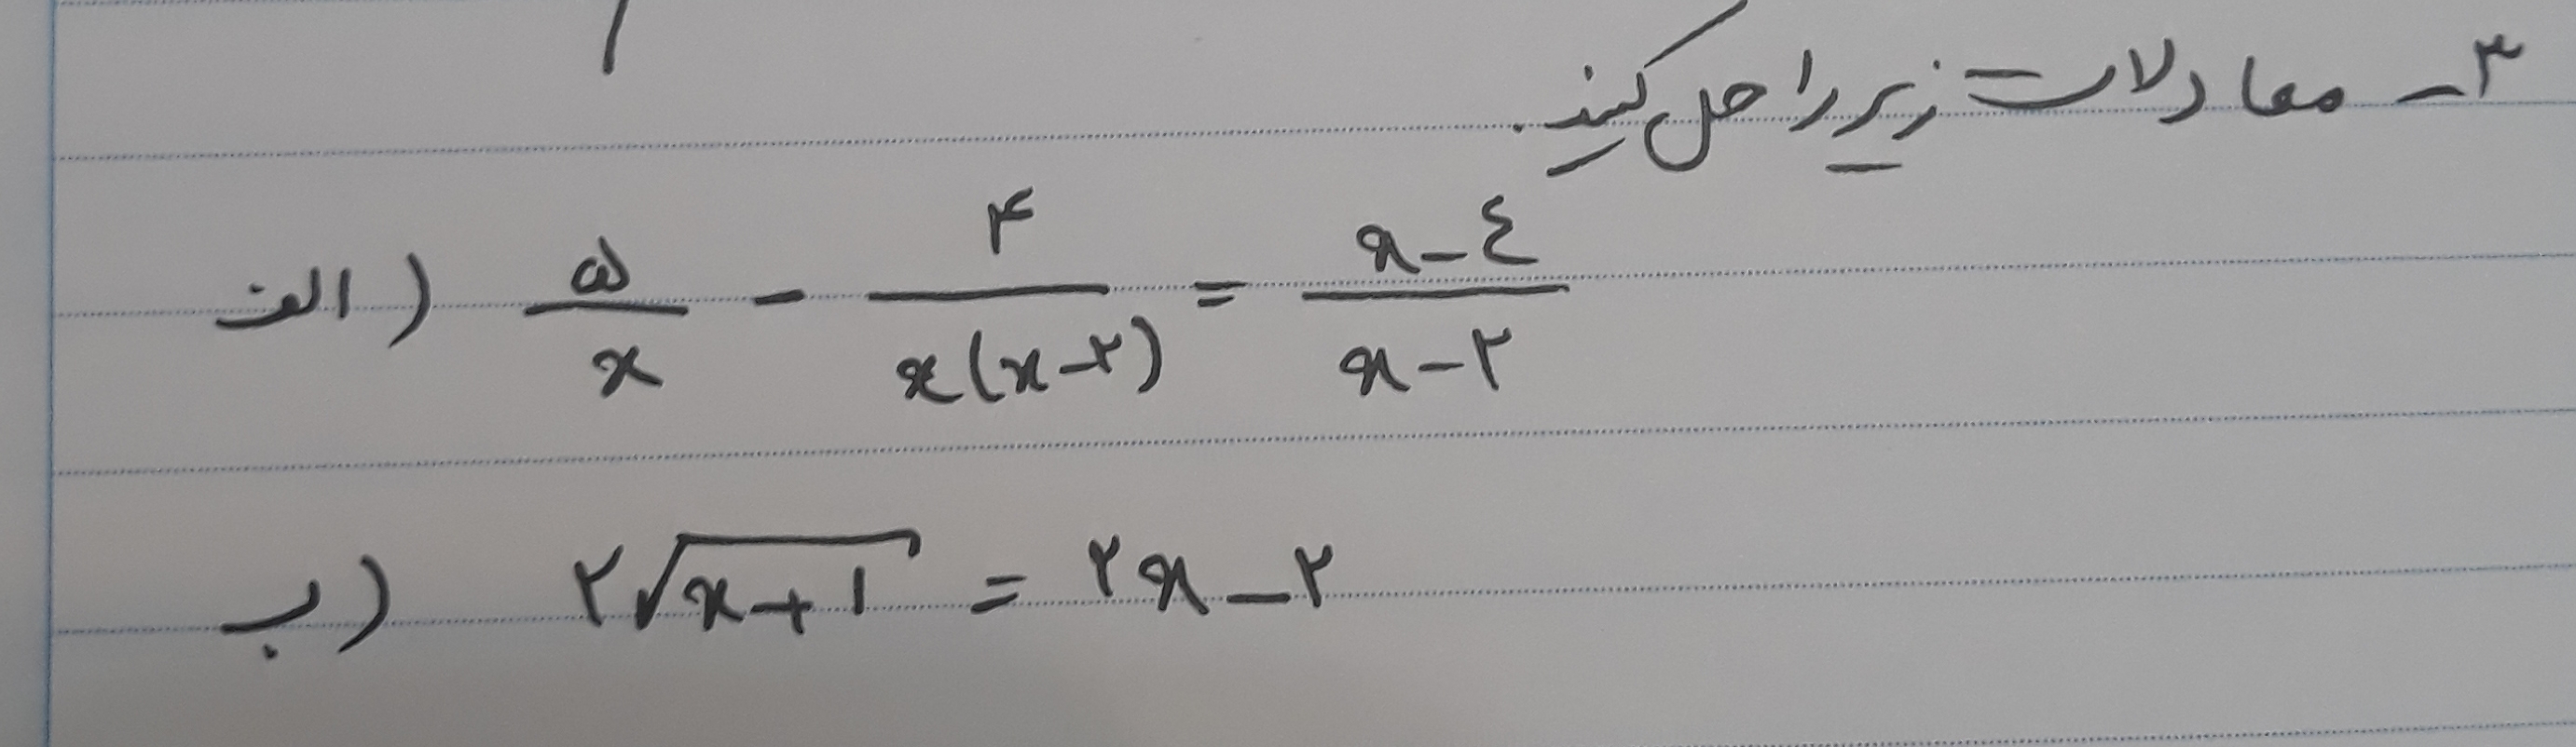 ۳- معادلات زیر را حل کنید.
الف) ۵/x - ۴/x(x-۲) = x-٤/x-۲
ب) ۲√x+۱ = ۲x-۲